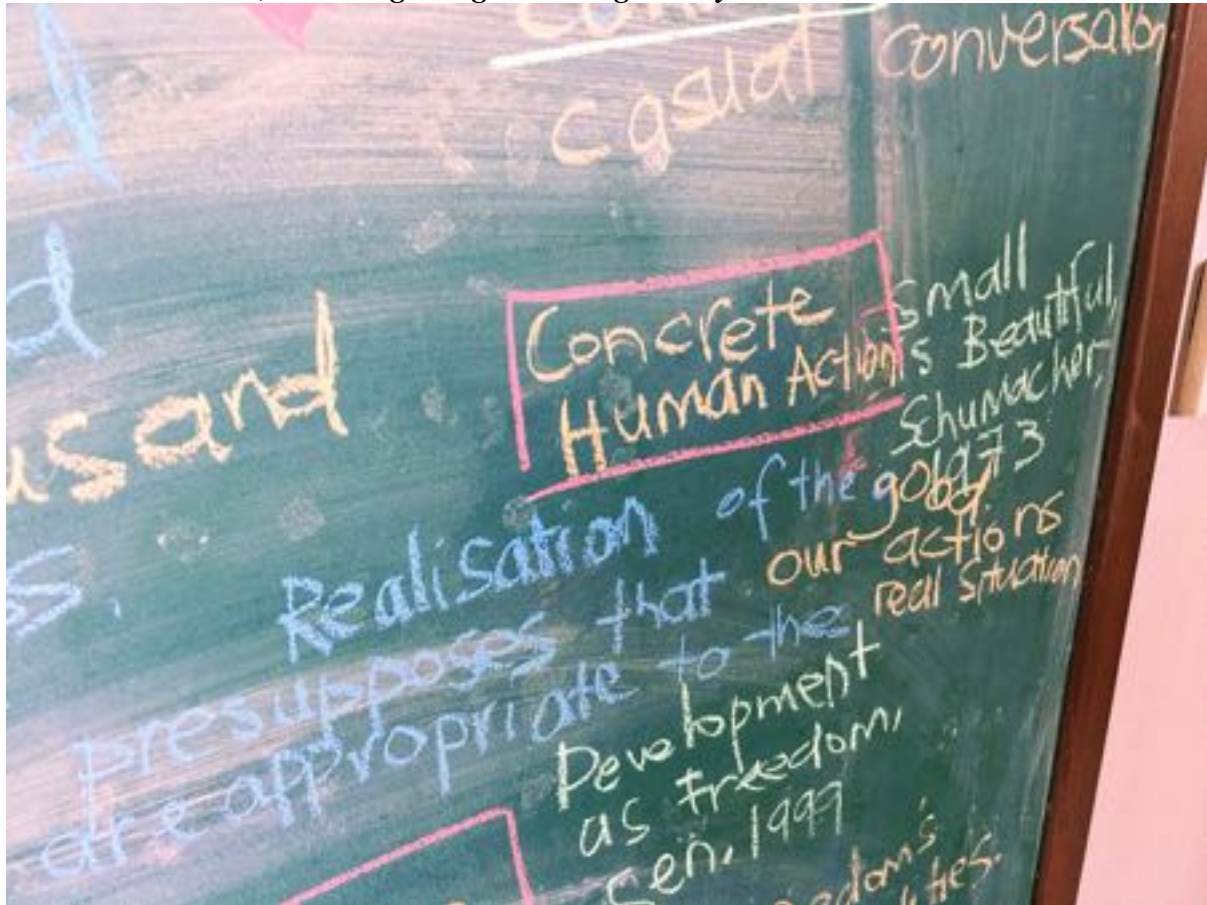 casual conversation
Concrete
Human Action
Small
is Beautiful,
Schumacher,
1973
usand
Realisation of the good
presupposes that our actions
are appropriate to the real situation
Development
as freedom,
Sen, 1999